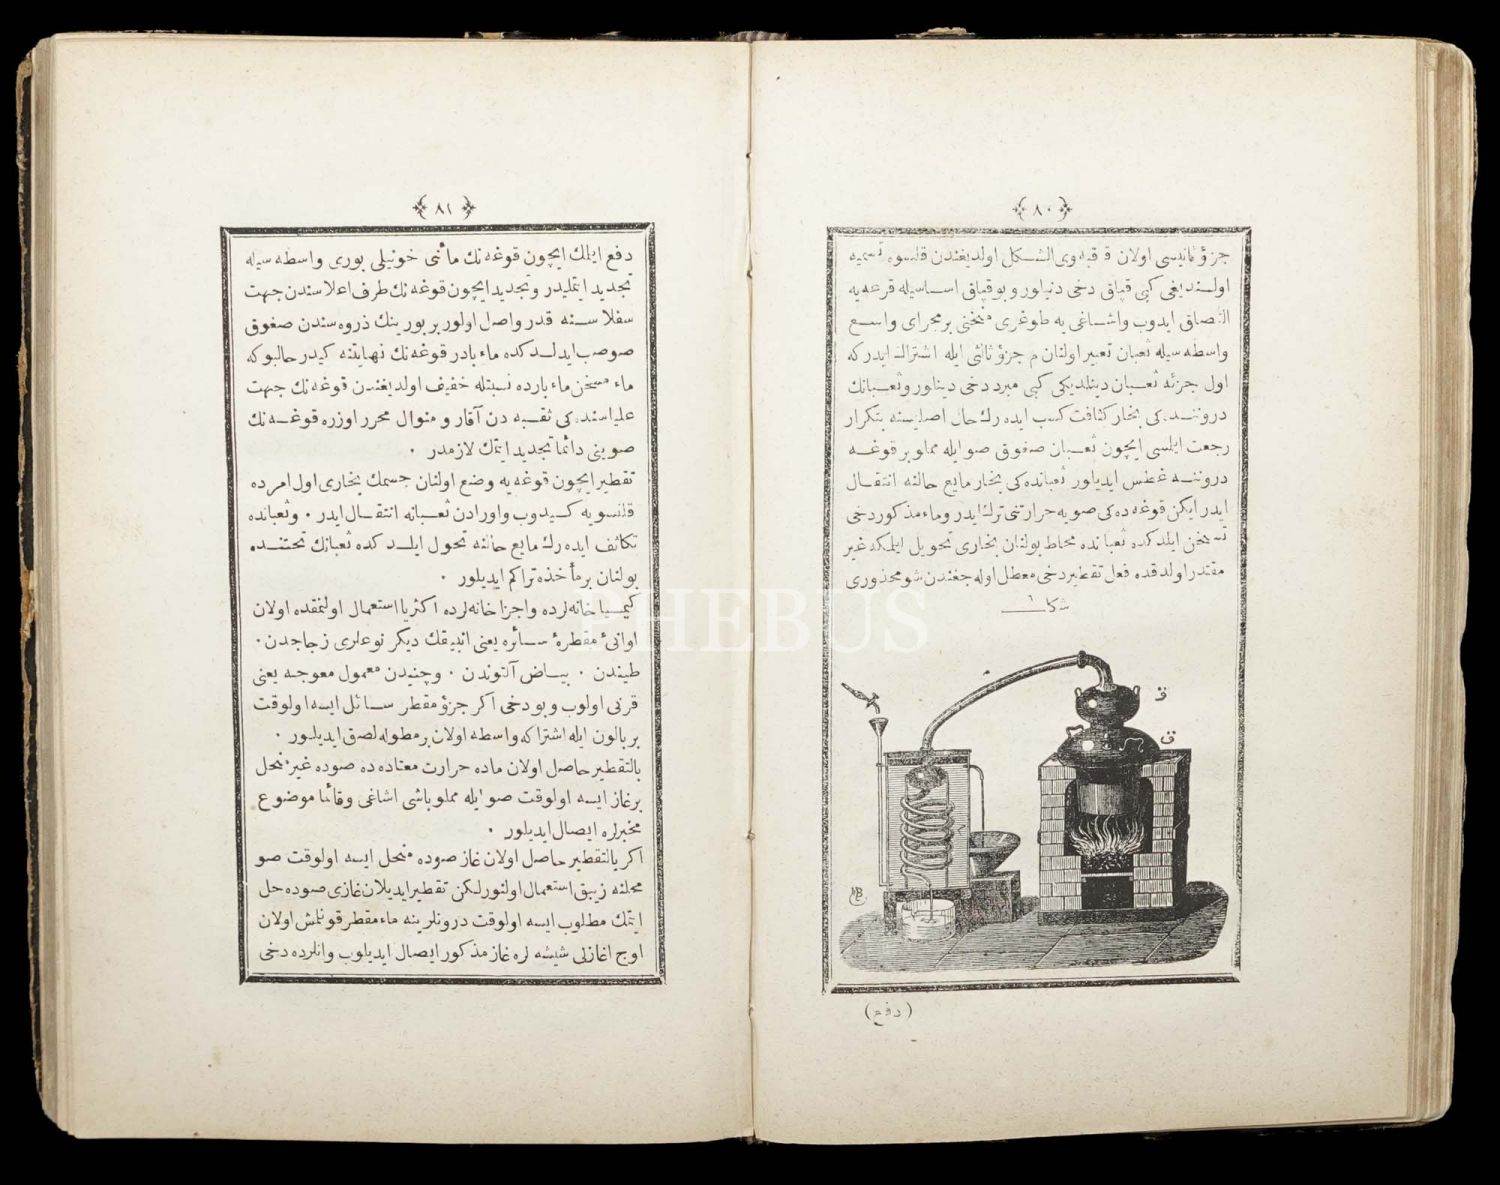 ﴿ ٨٠ ﴾
جزؤ ثانیسی اولان ق قبه‌وی الشكل اولدیغندن قلنسوه تسمیه
اولندیغی كبی قپاق دخی دنیلور و بو قپاق اساسیله قرعه‌یه
التصاق ایدوب واشاغی یه طوغری منحنی بر مجرای واسع
واسطه سیله ثعبان تعبیر اولنان م جزؤ ثالثی ایله اشتراك ایدر كه
اول جزئه ثعبان دینلدیكی كبی مبرد دخی دینلور وثعبانك
دروننده‌كی بخار كثافت كسب ایده رك حال اصلیسنه بتكرار
رجعت ایلسی ایچون ثعبان صغوق صو ایله مملو بر قوغه
دروننه غطس ایدیلور ثعبانده‌كی بخار مایع حالنه انتقال
ایدر ایكن قوغه ده‌كی صویه حرارتنی ترك ایدر وماء مذكور دخی
تسخن ایلدكده ثعبانده محاط بولنان بخاری تحویل ایلمكه غیر
مقتدر اولدقده فعل تقطیر دخی معطل اوله جغندن شو محذوری
شكل ٦
ق
ق
MB
( دفع )
﴿ ٨١ ﴾
دفع ایلك ایچون قوغه نك مائنی خونیلی بوری واسطه سیله
تجدید ایتملیدر وتجدید ایچون قوغه نك طرف اعلاسندن جهت
سفلاسنه قدر واصل اولور بر بورینك ذروه سندن صغوق
صو صب ایدلدكده ماء بادر قوغه نك نهایتنه كیدر حالبوكه
ماء مسخن ماء بارده نسبتله خفیف اولدیغندن قوغه نك جهت
علیاسنده‌كی ثقبه دن آقار و منوال محرر اوزره قوغه نك
صوینی دائما تجدید ایتمك لازمدر .
تقطیر ایچون قوغه یه وضع اولنان جسمك بخاری اول امرده
قلنسویه كیدوب واورادن ثعبانه انتقال ایدر . وثعبانده
تكاثف ایده رك مایع حالنه تحول ایلدكده ثعبانك تحتنده
بولنان بر مأخذه تراكم ایدیلور .
كیمیا خانه لرده واجزا خانه لرده اكثریا استعمال اولنمقده اولان
اوانئ مقطرۀ سائره یعنی انبیقك دیگر نوعلری زجاجدن .
طیندن . بیاض آلتوندن . وچنیدن معمول معوجه یعنی
قرنی اولوب وبو دخی اكر جزؤ مقطر سائل ایسه اولوقت
بر بالون ایله اشتراكه واسطه اولان بر مطوله لصق ایدیلور .
بالتقطیر حاصل اولان ماده حرارت معتاده ده صوده غیر منحل
بر غاز ایسه اولوقت صو ایله مملو باشی اشاغی وقائما موضوع
مخبرلره ایصال ایدیلور .
اكر بالتقطیر حاصل اولان غاز صوده منحل ایسه اولوقت صو
محلنه زیبق استعمال اولنور لكن تقطیر ایدیلان غازی صوده حل
ایتمك مطلوب ایسه اولوقت درونلرینه ماء مقطر قونلمش اولان
اوج اغازلی شیشه لره غاز مذكور ایصال ایدیلوب وانلرده دخی
PHEBUS